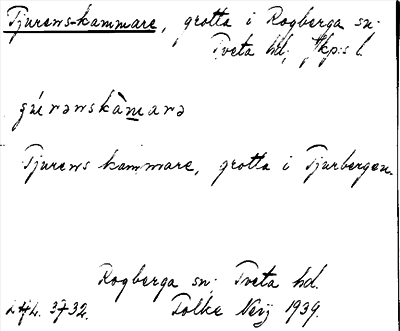 Tjurens-kammare, grotta i Rogberga sn.
Tveta hd., Jkp:s l.
Tjurens kammare, grotta i Tjurbergen.
Rogberga sn. Tveta hd.
3732. Folke Neij 1939.